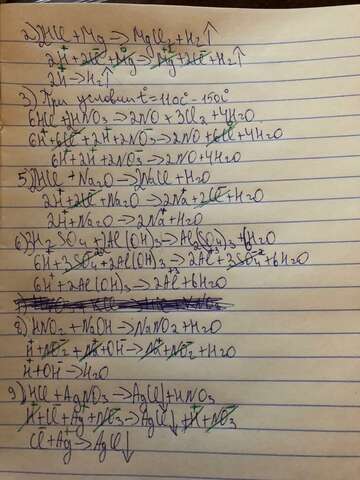 2) 2HCl + Mg → MgCl₂ + H₂↑
2H⁺ + 2Cl⁻ + Mg⁰ → Mg⁺² + 2Cl⁻ + H₂↑
2H⁺ → H₂↑
3) При условии t° = 110° - 150°
6HCl + HNO₃ → 2NO + 3Cl₂ + 4H₂O
6H⁺ + 6Cl⁻ + 2H⁺ + 2NO₃⁻ → 2NO + 6Cl⁰ + 4H₂O
6H⁺ + 2H⁺ + 2NO₃⁻ → 2NO + 4H₂O
5) 2HCl + Na₂O → 2NaCl + H₂O
2H⁺ + 2Cl⁻ + Na₂O → 2Na⁺ + 2Cl⁻ + H₂O
2H⁺ + Na₂O → 2Na⁺ + H₂O
6) 3H₂SO₄ + 2Al(OH)₃ → Al₂(SO₄)₃ + 6H₂O
6H⁺ + 3SO₄⁻² + 2Al(OH)₃ → 2Al⁺³ + 3SO₄⁻² + 6H₂O
6H⁺ + 2Al(OH)₃ → 2Al⁺³ + 6H₂O
8) HNO₂ + NaOH → NaNO₂ + H₂O
H⁺ + NO₂⁻ + Na⁺ + OH⁻ → Na⁺ + NO₂⁻ + H₂O
H⁺ + OH⁻ → H₂O
9) HCl + AgNO₃ → AgCl↓ + HNO₃
H⁺ + Cl⁻ + Ag⁺ + NO₃⁻ → AgCl↓ + H⁺ + NO₃⁻
Cl⁻ + Ag⁺ → AgCl↓